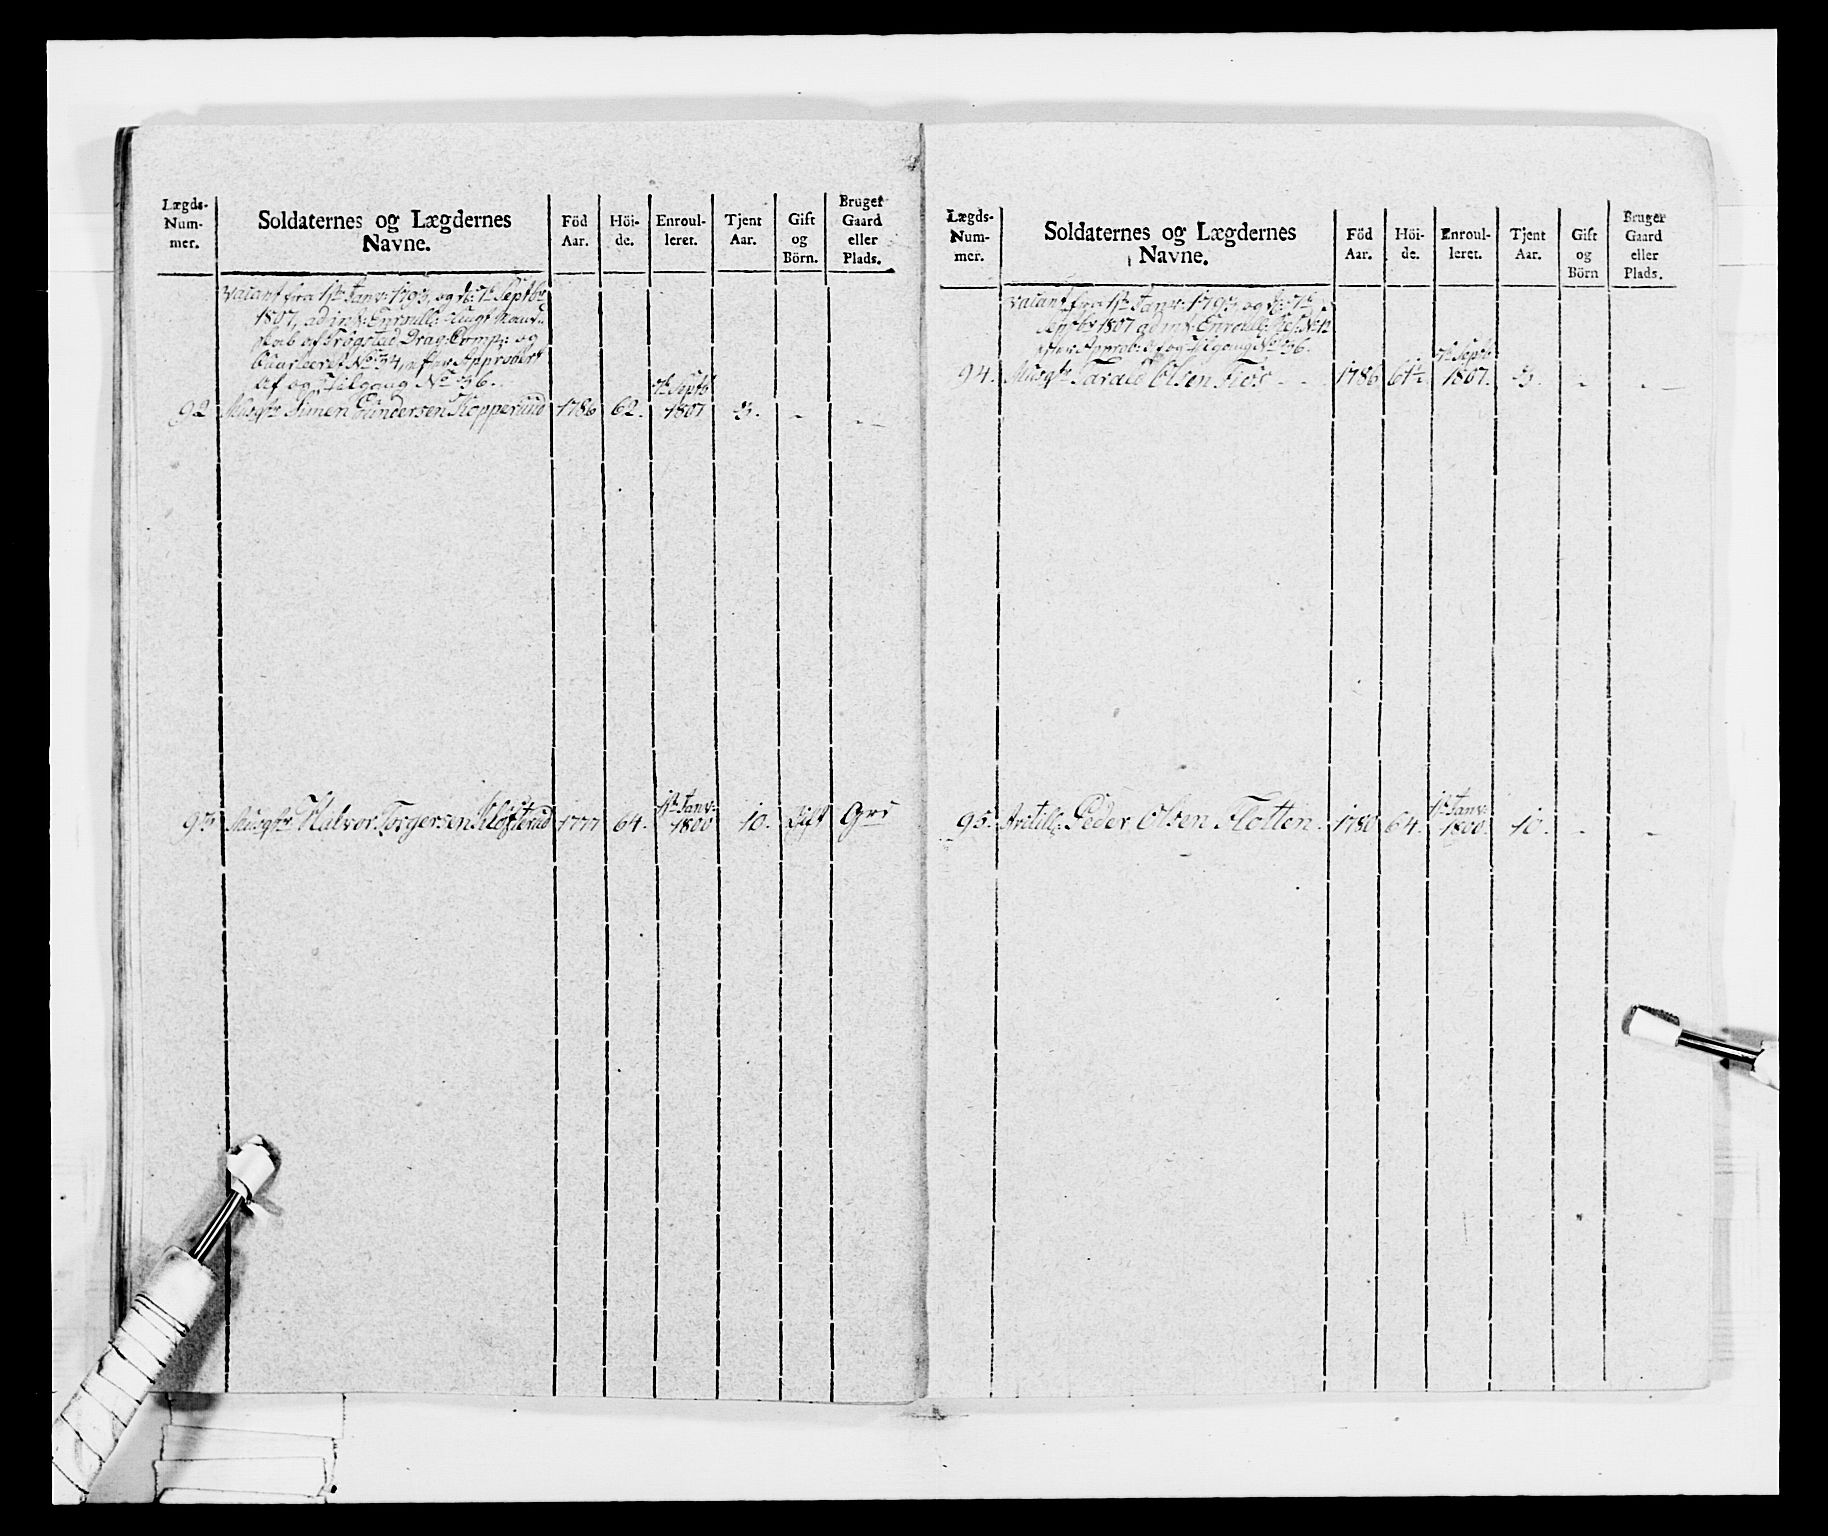 Lægds-
Num-
mer.
Soldaternes og Lægdernes
Navne.
Föd
Aar.
Höi-
de.
Enroul-
leret.
Tjent
Aar.
Gift
og
Börn.
Bruger
Gaard
eller
Plads.
Vacant fra 1ste Janv: 1793, og d: 7de Septbr
1807, ad int: Enroull:
af Trögstad Drag: Comp: og
No 34, efter Approbert
Af og Tilgang No 36.
92. Musqtr Simen Gundersen Kopperud 1786 62. 7de Septb 1807 3. -
93. Musqtr Halvor Torgersen Kløfterud 1777 64. 1ste Janv: 1800 10. Gift Grd
Lægds-
Num-
mer.
Soldaternes og Lægdernes
Navne.
Föd
Aar.
Höi-
de.
Enroul-
leret.
Tjent
Aar.
Gift
og
Börn
Bruger
Gaard
eller
Plads.
Vacant fra 1ste Janv: 1793, og d: 7de
Septbr 1807 ad int: Enroull:
efter Approb: Af og Tilgang No 36.
94. Musqtr Tarald Olsen Fiös 1786 61½ 7de Septb 1807. 3. -
95. Artill: Peder Olsen Flotten. 1780 64. 1ste Janv: 1800. 10. -